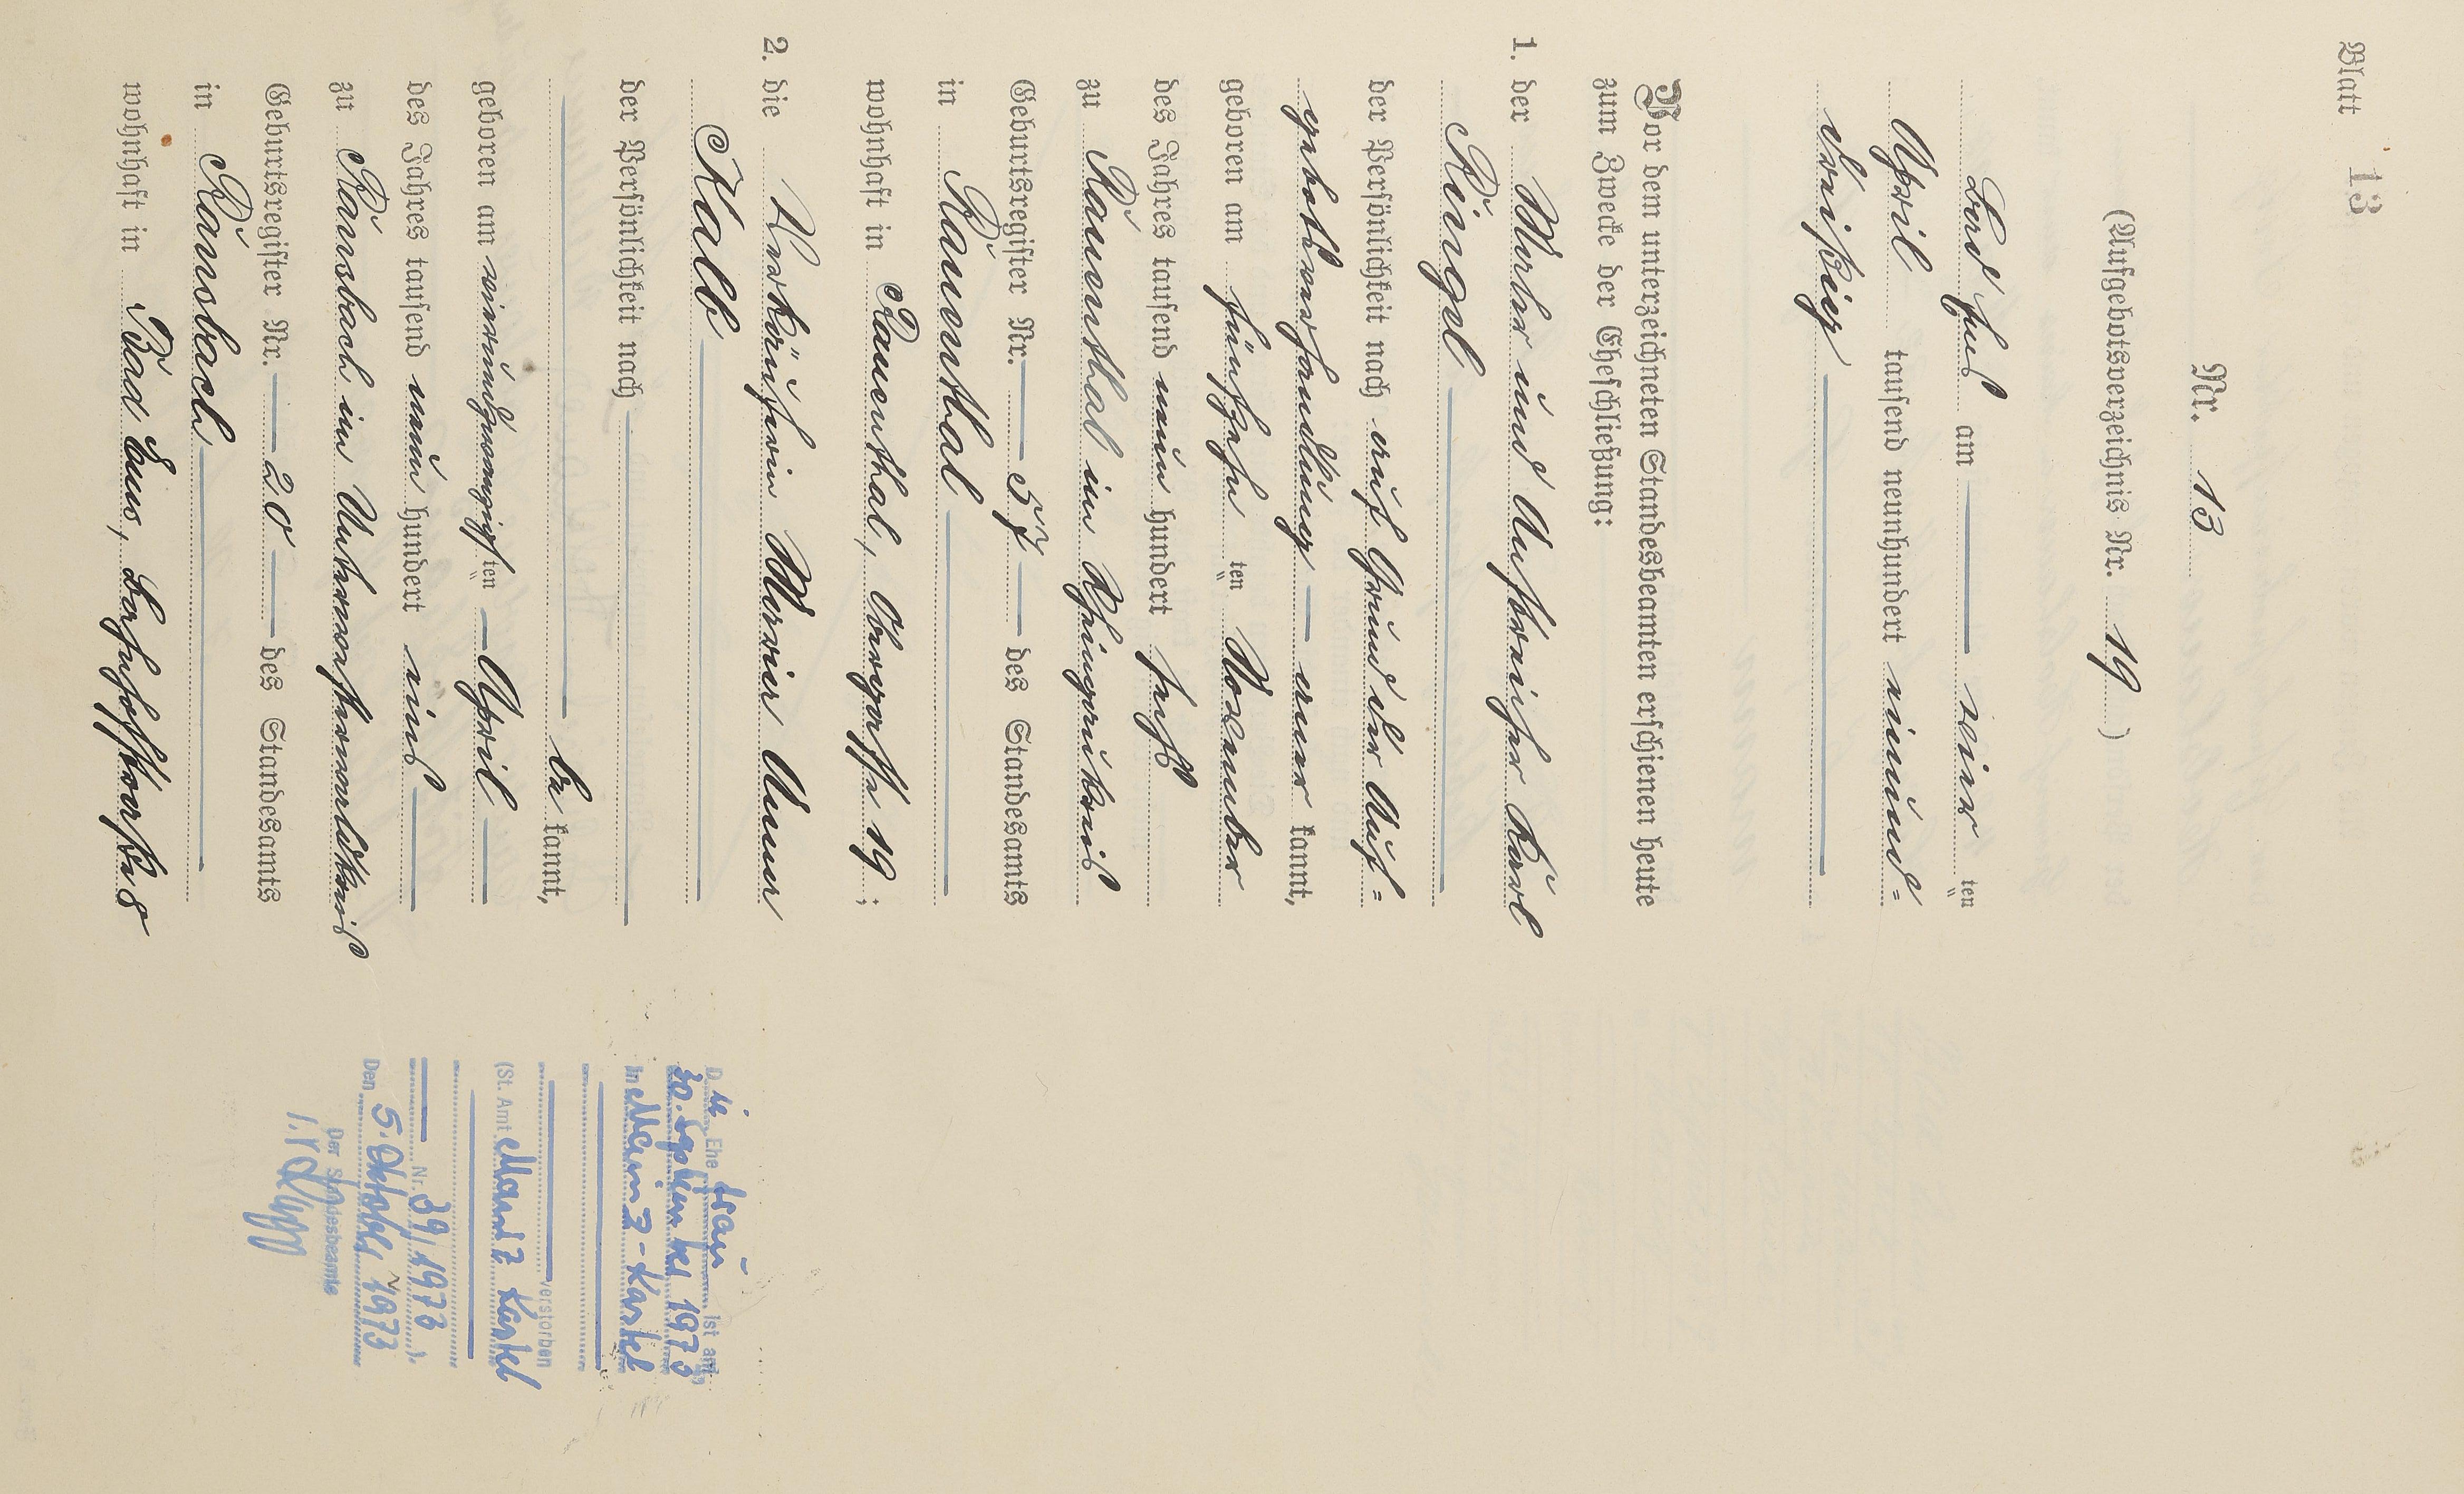 Blatt 13
Nr. 13
(Aufgebotsverzeichnis Nr. 19)
Bad Ems am vier ten
April tausend neunhundert einund=
dreißig
Vor dem unterzeichneten Standesbeamten erschienen heute
zum Zwecke der Eheschließung:
1. der Maler und Anstreicher Karl
Ringel
der Persönlichkeit nach auf Grund der Auf=
gebotsverhandlung aner kannt,
geboren am fünfzehn ten November
des Jahres tausend neun hundert sechs
zu Rauenthal im Rheingaukreis
Geburtsregister Nr. 57 des Standesamts
in Rauenthal
wohnhaft in Rauenthal, 19;
2. die Verkäuferin Maria Anna
Kalb
der Persönlichkeit nach
be kannt,
geboren am einundzwanzigsten April
des Jahres tausend neun hundert eins
zu Ransbach im Unterwesterwaldkreis
Geburtsregister Nr. 20 des Standesamts
in Ransbach
wohnhaft in Bad Ems, Bahnhofstraße 8
Die Ehefrau ist am
30. September 1973
in Mainz-Kastel
verstorben
(St. Amt Mainz Kastel
Nr. 39/1973).
Den 5. Oktober 1973
Der Standesbeamte